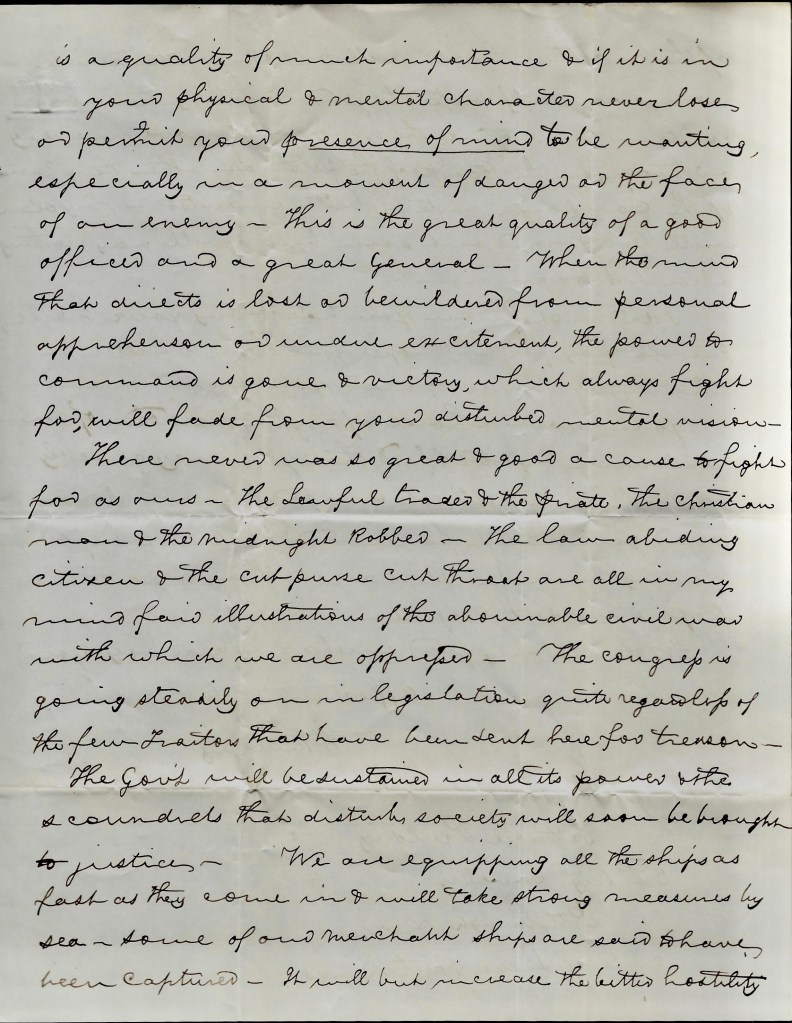 is a quality of much importance & if it is in
your physical & mental character never lose
or permit your presence of mind to be wanting,
especially in a moment of danger or the face
of an enemy – This is the great quality of a good
officer and a great General – When the mind
that directs is lost or bewildered from personal
apprehenson or undue excitement, the power to
command is gone & victory, which always fight
for, will fade from your disturbed mental vision –
There never was so great & good a cause to fight
for as ours – The Lawful trader & the pirate, the christian
man & the midnight Robber – The law abiding
citizen & the cut purse cut throat are all in my
mind fair illustrations of the abominable civil war
with which we are oppressed – The congress is
going steadily on in legislation quite regardless of
the few Traitors that have been sent here for treason –
The Gov't will be sustained in all its power & the
scoundrels that disturb society will soon be brought
to justice – We are equipping all the ships as
fast as they come in & will take strong measures by
sea – some of our merchant ships are said to have
been captured – It will but increase the bitter hostility